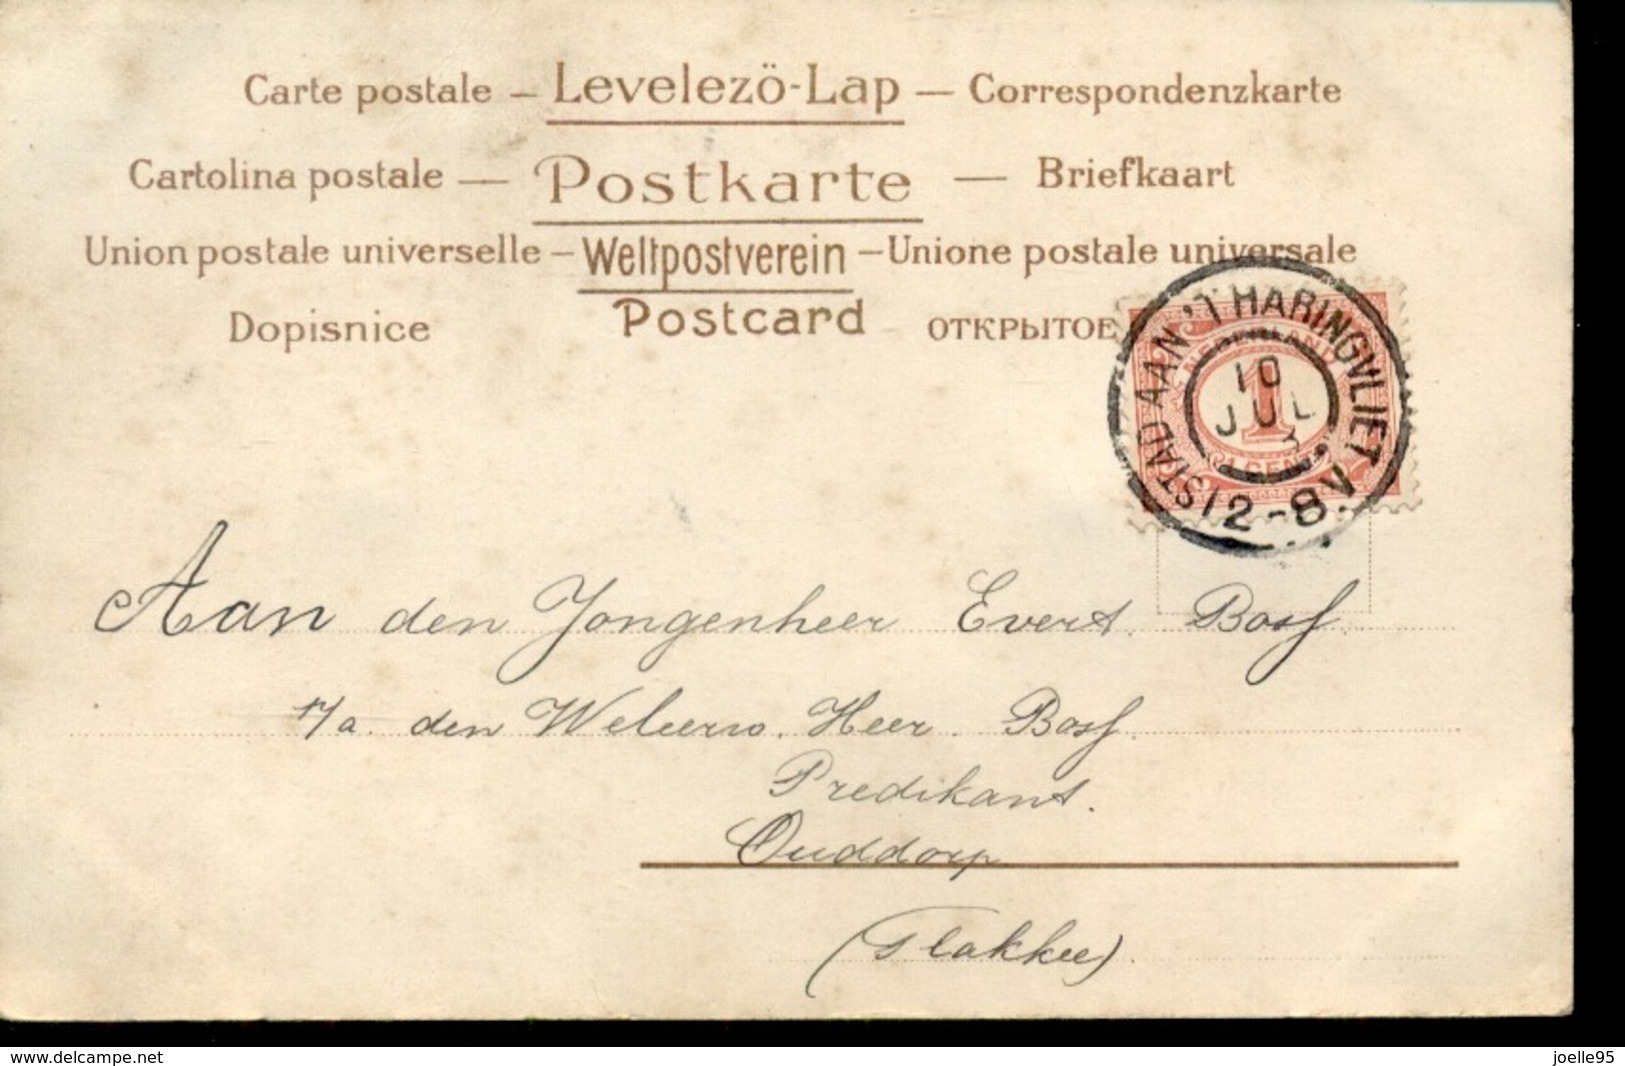 Carte postale — Levelezö-Lap — Correspondenzkarte
Cartolina postale — Postkarte — Briefkaart
Union postale universelle — Weltpostverein — Unione postale universale
Dopisnice Postcard ОТКРЫТОЕ
STAD AAN 'T HARINGVLIET
10
JUL
3
12-8V.
NEDERLAND
1
1 CENT
Aan den Jongenheer Evert. Bosf.
p/a. den Weleerw. Heer. Bosf.
Predikant.
Ouddorp
(Flakkee).
www.delcampe.net joelle95